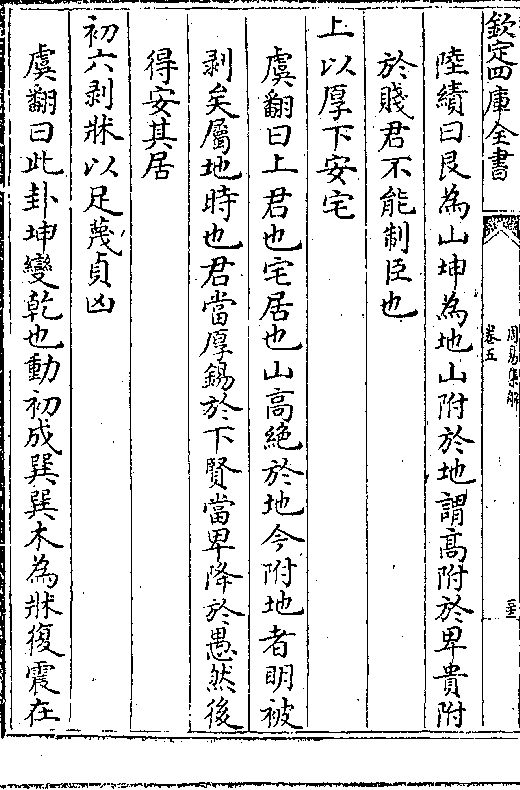 欽定四庫全書
周易集解
卷五
陸績曰艮為山坤為地山附於地謂髙附於卑貴附
於賤君不能制臣也
上以厚下安宅
虞翻曰上君也宅居也山高絶於地今附地者明被
剥矣屬地時也君當厚錫於下賢當卑降於愚然後
得安其居
初六剥牀以足蔑貞凶
虞翻曰此卦坤變乾也動初成巽巽木為牀復震在